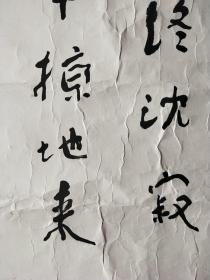 终沈寂
掠地来